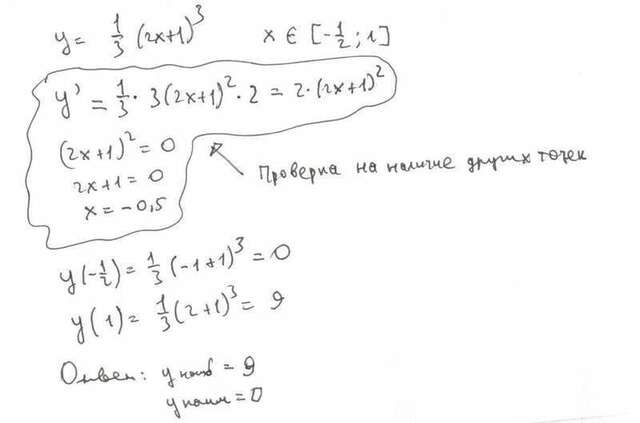 y = 1/3 (2x+1)³ x ∈ [-1/2; 1]
y' = 1/3 · 3(2x+1)² · 2 = 2 · (2x+1)²
(2x+1)² = 0
2x+1 = 0
x = -0,5
Проверка на наличие других точек
y(-1/2) = 1/3 (-1+1)³ = 0
y(1) = 1/3 (2+1)³ = 9
Ответ: y наиб = 9
y наим = 0